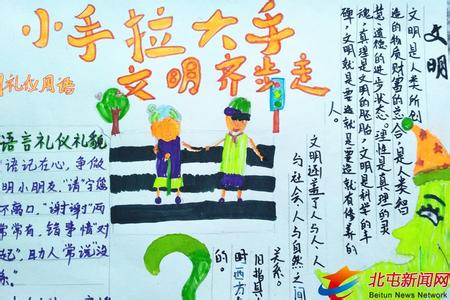 小手拉大手
文明齐步走
礼仪用语
语言礼仪礼貌
"语记在心,争做
明小朋友,"请字您
不离口,"谢谢"两
常常有,错事情
起",助人常说"没
系"。
文明
文明是人类所创
造的物质财富的总合,是人类智
慧、道德的进步状态。理性是真理的灵
魂,真理是文明的胚胎,文明是科学的丰
碑,文明就是要造就有修养的
人。
文明涵盖了人与人、人
与社会、人与自然之间
关系。
旧指具
时西方
的。
北屯新闻网
Beitun News Network